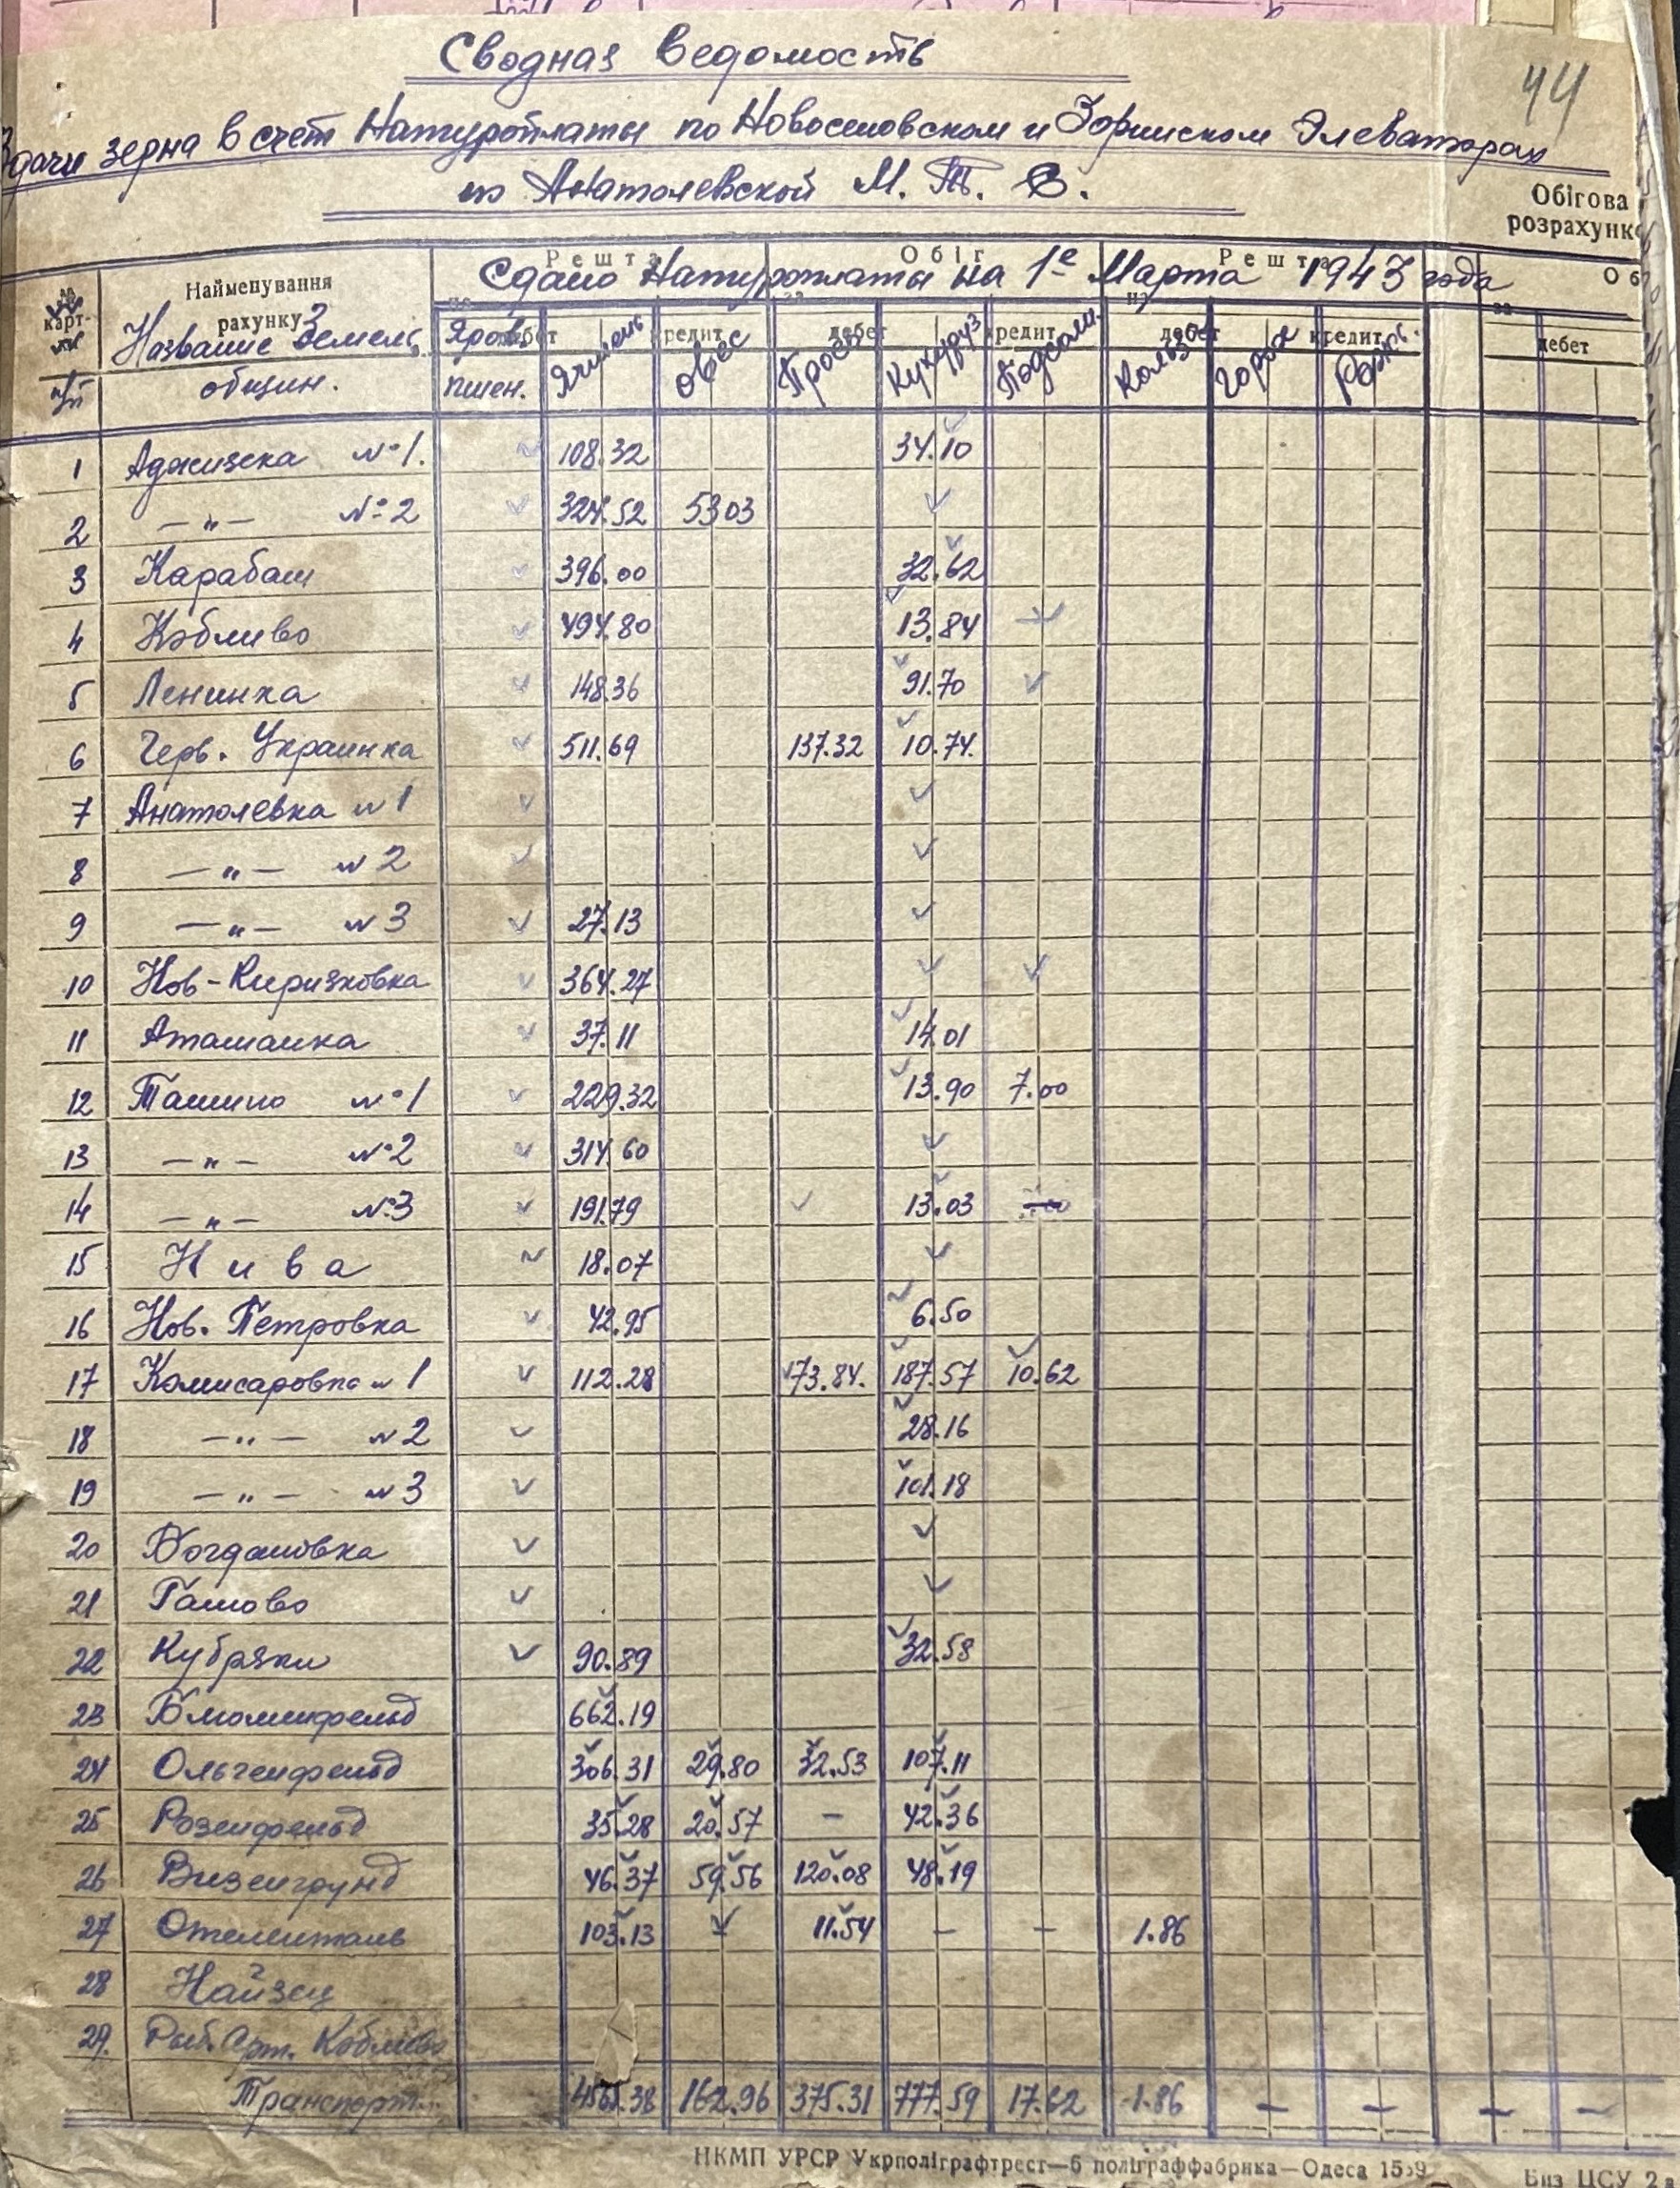 44
Сводная ведомость
Здачи зерна в счет Натуроплаты по Новоселовском и Зоринском Элеваторах
по Анатолевской М. Т. С.
Обігова
розрахунк
Решта Обіг Решта Об
Сдано Натуроплаты на 1е Марта 1943 года
карт- Найменування рахунку дебет кредит дебет кредит дебет кредит дебет
Название Земель общин. Яров. пшен. Ячмень Овес Просо Кукуруз Подсолн. Кользо Горох Рожь
1 Аджиаска №1. 108.32 34.10
2 —„— №2 324.52 53 03
3 Карабаш 396.00 32.62
4 Кобливо 494.80 13.84
5 Ленинка 148.36 91.70
6 Черв. Украинка 511.69 137.32 10.74.
7 Анатолевка №1
8 —„— №2
9 —„— №3 27.13
10 Нов-Киризковка 364.27
11 Аташанка 37.11 14.01
12 Ташино №1 229.32 13.90 7.00
13 —„— №2 314.60
14 —„— №3 191.79 13.03
15 Нива 18.07
16 Нов. Петровка 42.95 6.50
17 Комисаровка №1 112.28 73.84. 187.57 10.62
18 —„— №2 28.16
19 —„— №3 101.18
20 Богдановка
21 Ташово
22 Кубряки 90.89 32.58
23 Блюменфельд 662.19
24 Ольгенфельд 306.31 29.80 32.53 107.11
25 Розенфельд 35.28 20.57 — 42.36
26 Визенгрунд 46.37 59.56 120.08 48.19
27 103.13 11.54 — — 1.86
28 Найзец
29. Рыб. Арт. Коблево
Транспорт. 4565.38 162.96 375.31 777.59 17.62 1.86 — — — —
НКМП УРСР Укрполіграфтрест—6 поліграффабрика—Одеса 1539
Виз ЦСУ 2